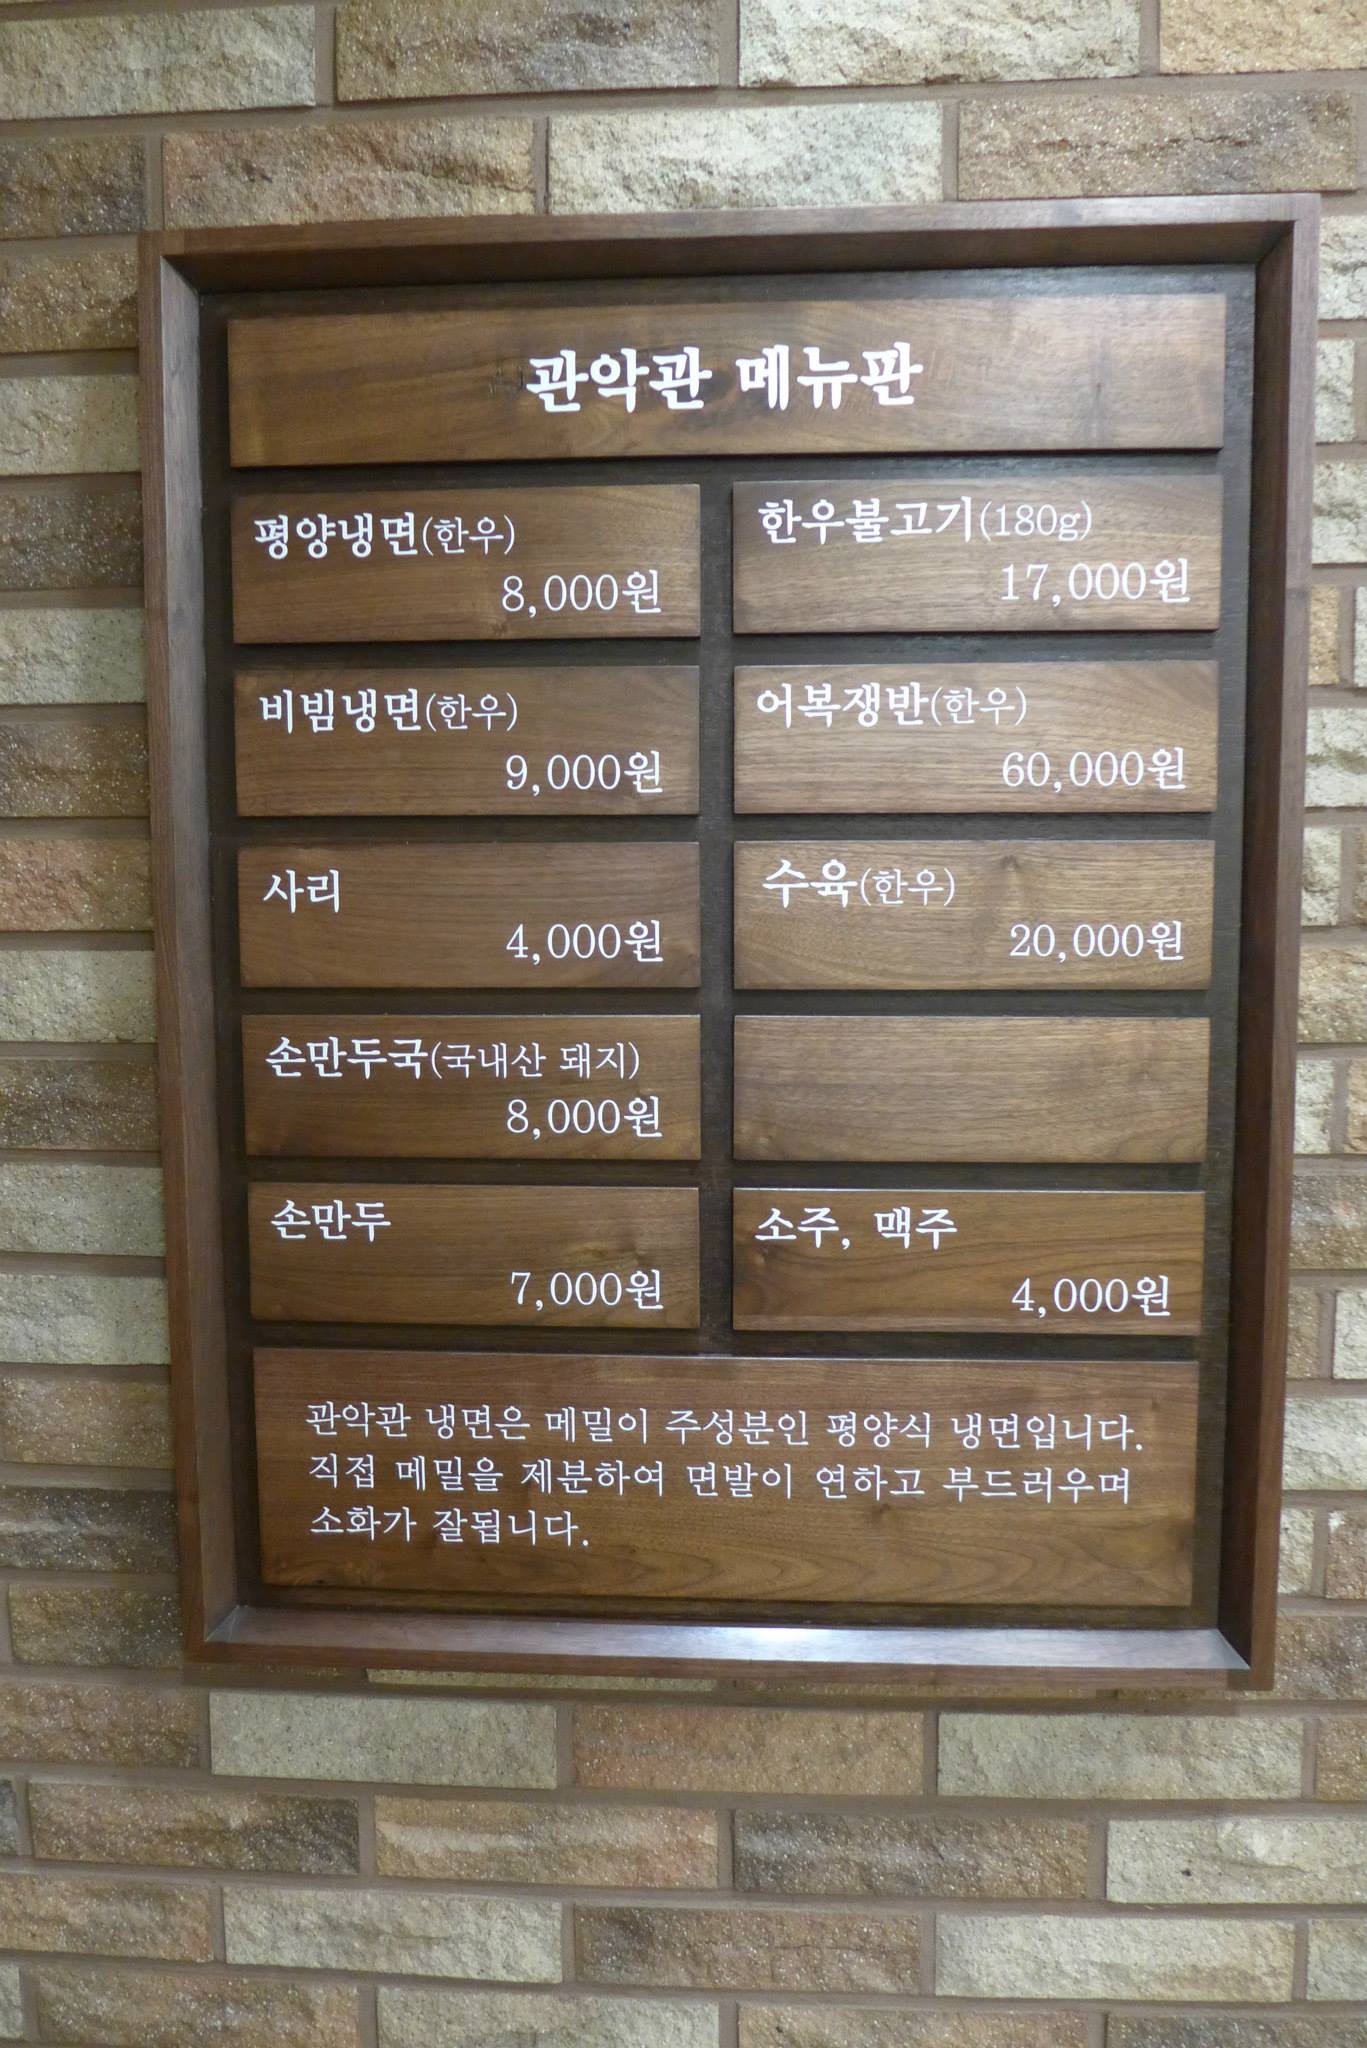 관악관 메뉴판
평양냉면(한우)
8,000원
비빔냉면(한우)
9,000원
사리
4,000원
손만두국(국내산 돼지)
8,000원
손만두
7,000원
한우불고기(180g)
17,000원
어복쟁반(한우)
60,000원
수육(한우)
20,000원
소주, 맥주
4,000원
관악관 냉면은 메밀이 주성분인 평양식 냉면입니다.
직접 메밀을 제분하여 면발이 연하고 부드러우며
소화가 잘됩니다.